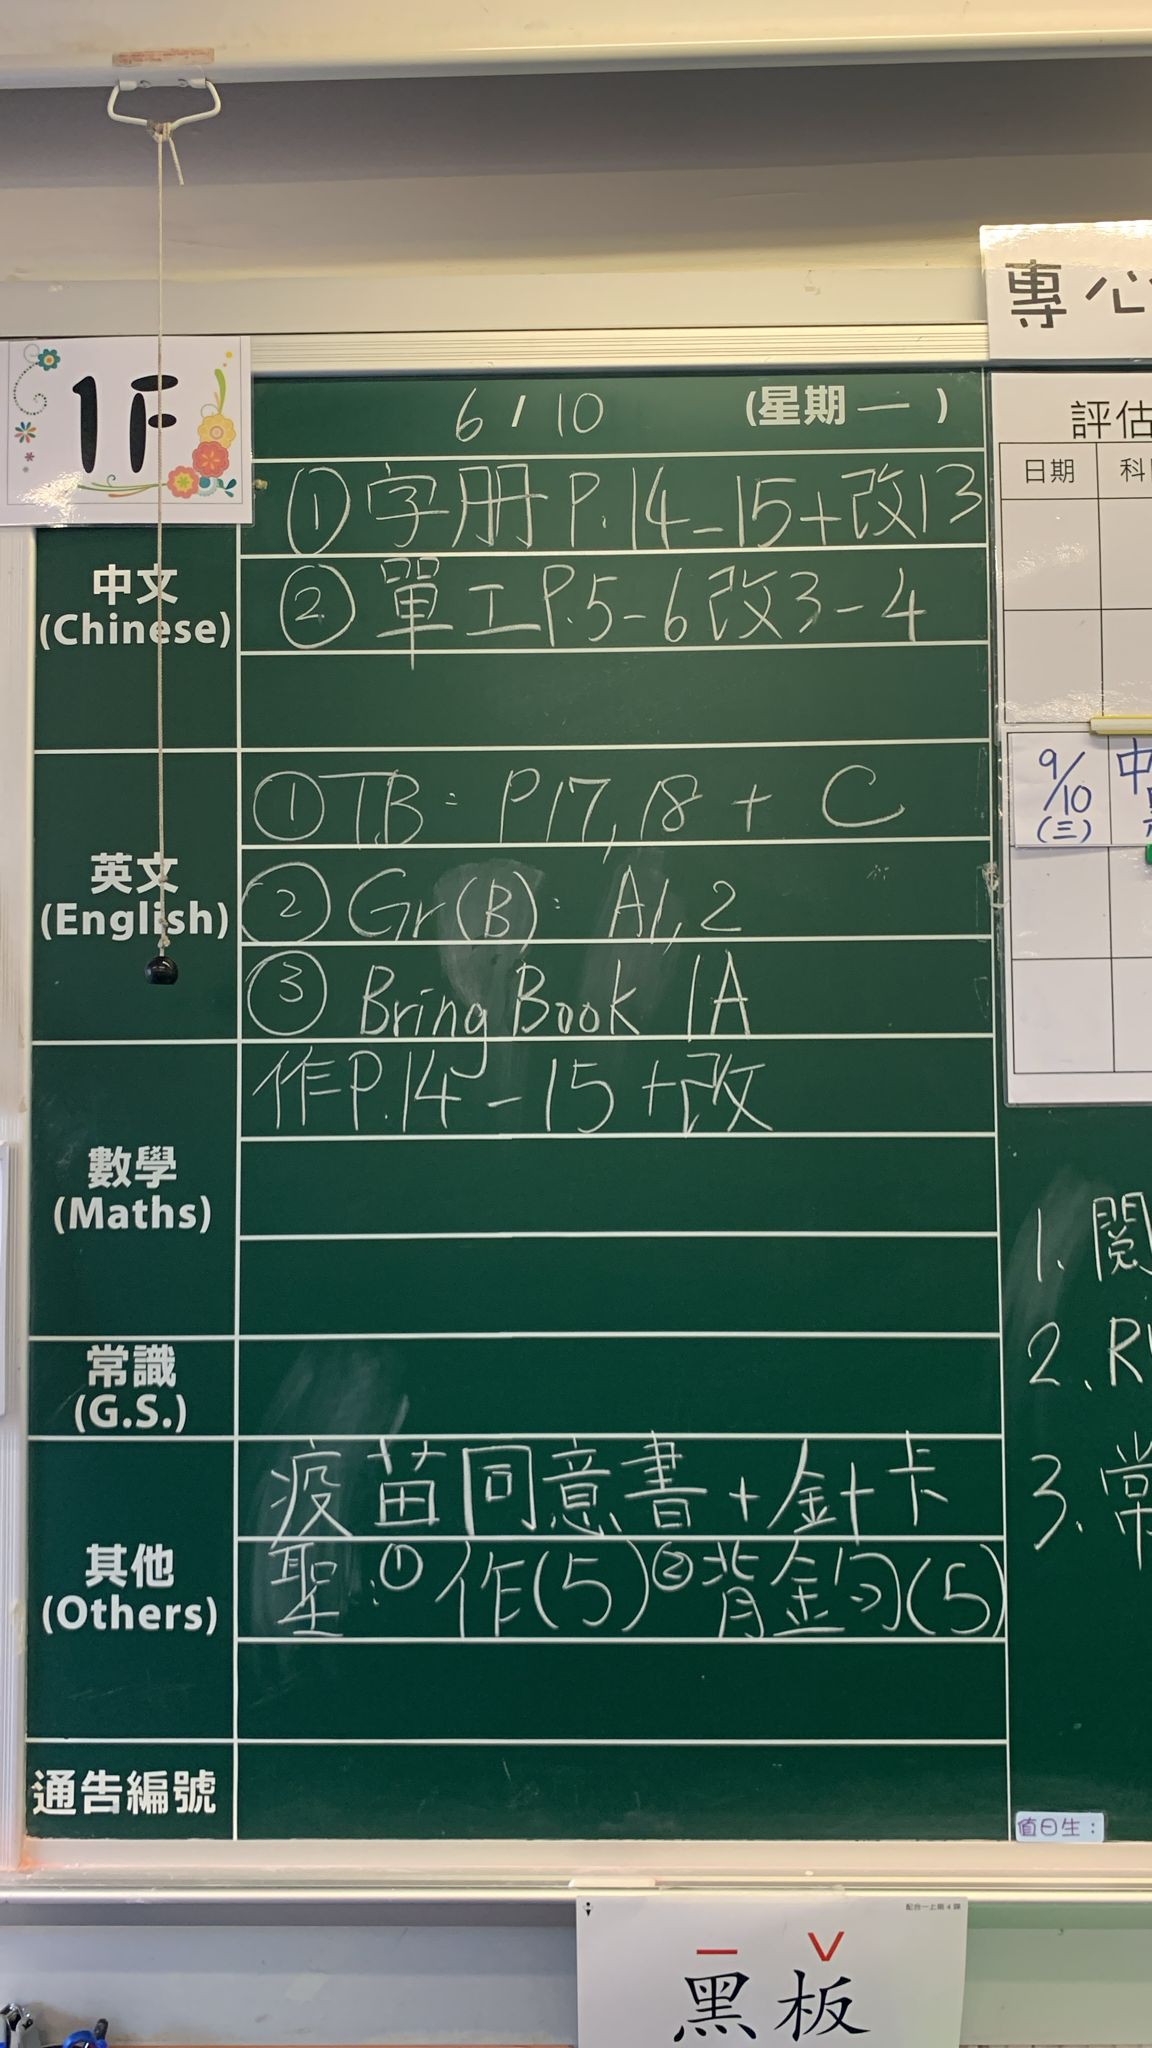 專心
1F
6/10 (星期一)
中文
(Chinese)
① 字册 P.14-15+改13
② 單工P.5-6改3-4
英文
(English)
① T.B: P17,18 + C
② Gr(B): A1,2
③ Bring Book 1A
數學
(Maths)
作P.14-15+改
常識
(G.S.)
其他
(Others)
疫苗同意書+針卡
聖:①作(5)②背金句(5)
通告編號
評估
日期
9/10
(三)
中
1. 閱
2. R
3. 常
值日生:
配合一上第4課
黑板